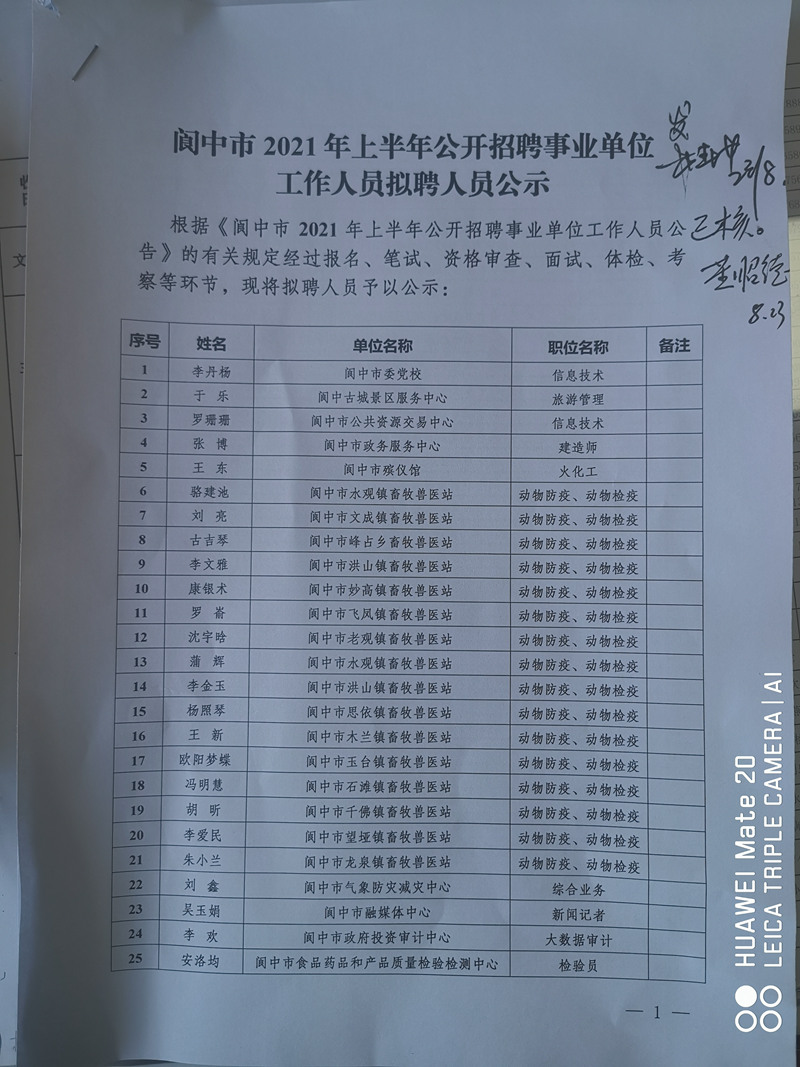 阆中市 2021 年上半年公开招聘事业单位
工作人员拟聘人员公示
发
23/8.
已核。
8.23
根据《阆中市 2021 年上半年公开招聘事业单位工作人员公
告》的有关规定经过报名、笔试、资格审查、面试、体检、考
察等环节，现将拟聘人员予以公示：
序号 姓名 单位名称 职位名称 备注
1 李丹杨 阆中市委党校 信息技术
2 于 乐 阆中古城景区服务中心 旅游管理
3 罗珊珊 阆中市公共资源交易中心 信息技术
4 张 博 阆中市政务服务中心 建造师
5 王 东 阆中市殡仪馆 火化工
6 骆建池 阆中市水观镇畜牧兽医站 动物防疫、动物检疫
7 刘 亮 阆中市文成镇畜牧兽医站 动物防疫、动物检疫
8 古吉琴 阆中市峰占乡畜牧兽医站 动物防疫、动物检疫
9 李文雅 阆中市洪山镇畜牧兽医站 动物防疫、动物检疫
10 康银术 阆中市妙高镇畜牧兽医站 动物防疫、动物检疫
11 罗 崙 阆中市飞凤镇畜牧兽医站 动物防疫、动物检疫
12 沈宇晗 阆中市老观镇畜牧兽医站 动物防疫、动物检疫
13 蒲 辉 阆中市水观镇畜牧兽医站 动物防疫、动物检疫
14 李金玉 阆中市洪山镇畜牧兽医站 动物防疫、动物检疫
15 杨照琴 阆中市思依镇畜牧兽医站 动物防疫、动物检疫
16 王 新 阆中市木兰镇畜牧兽医站 动物防疫、动物检疫
17 欧阳梦蝶 阆中市玉台镇畜牧兽医站 动物防疫、动物检疫
18 冯明慧 阆中市石滩镇畜牧兽医站 动物防疫、动物检疫
19 胡 昕 阆中市千佛镇畜牧兽医站 动物防疫、动物检疫
20 李爱民 阆中市望垭镇畜牧兽医站 动物防疫、动物检疫
21 朱小兰 阆中市龙泉镇畜牧兽医站 动物防疫、动物检疫
22 刘 鑫 阆中市气象防灾减灾中心 综合业务
23 吴玉娟 阆中市融媒体中心 新闻记者
24 李 欢 阆中市政府投资审计中心 大数据审计
25 安洛均 阆中市食品药品和产品质量检验检测中心 检验员
— 1 —
HUAWEI Mate 20
LEICA TRIPLE CAMERA | AI